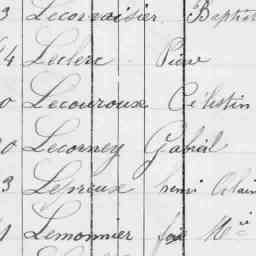 3 Lecornaisier Baptist
4 Leclerc Pierre
0 Lecouroux Célestin
0 Lecorney Gabriel
3 Lepreux henri Alain
1 Lemonnier Mie